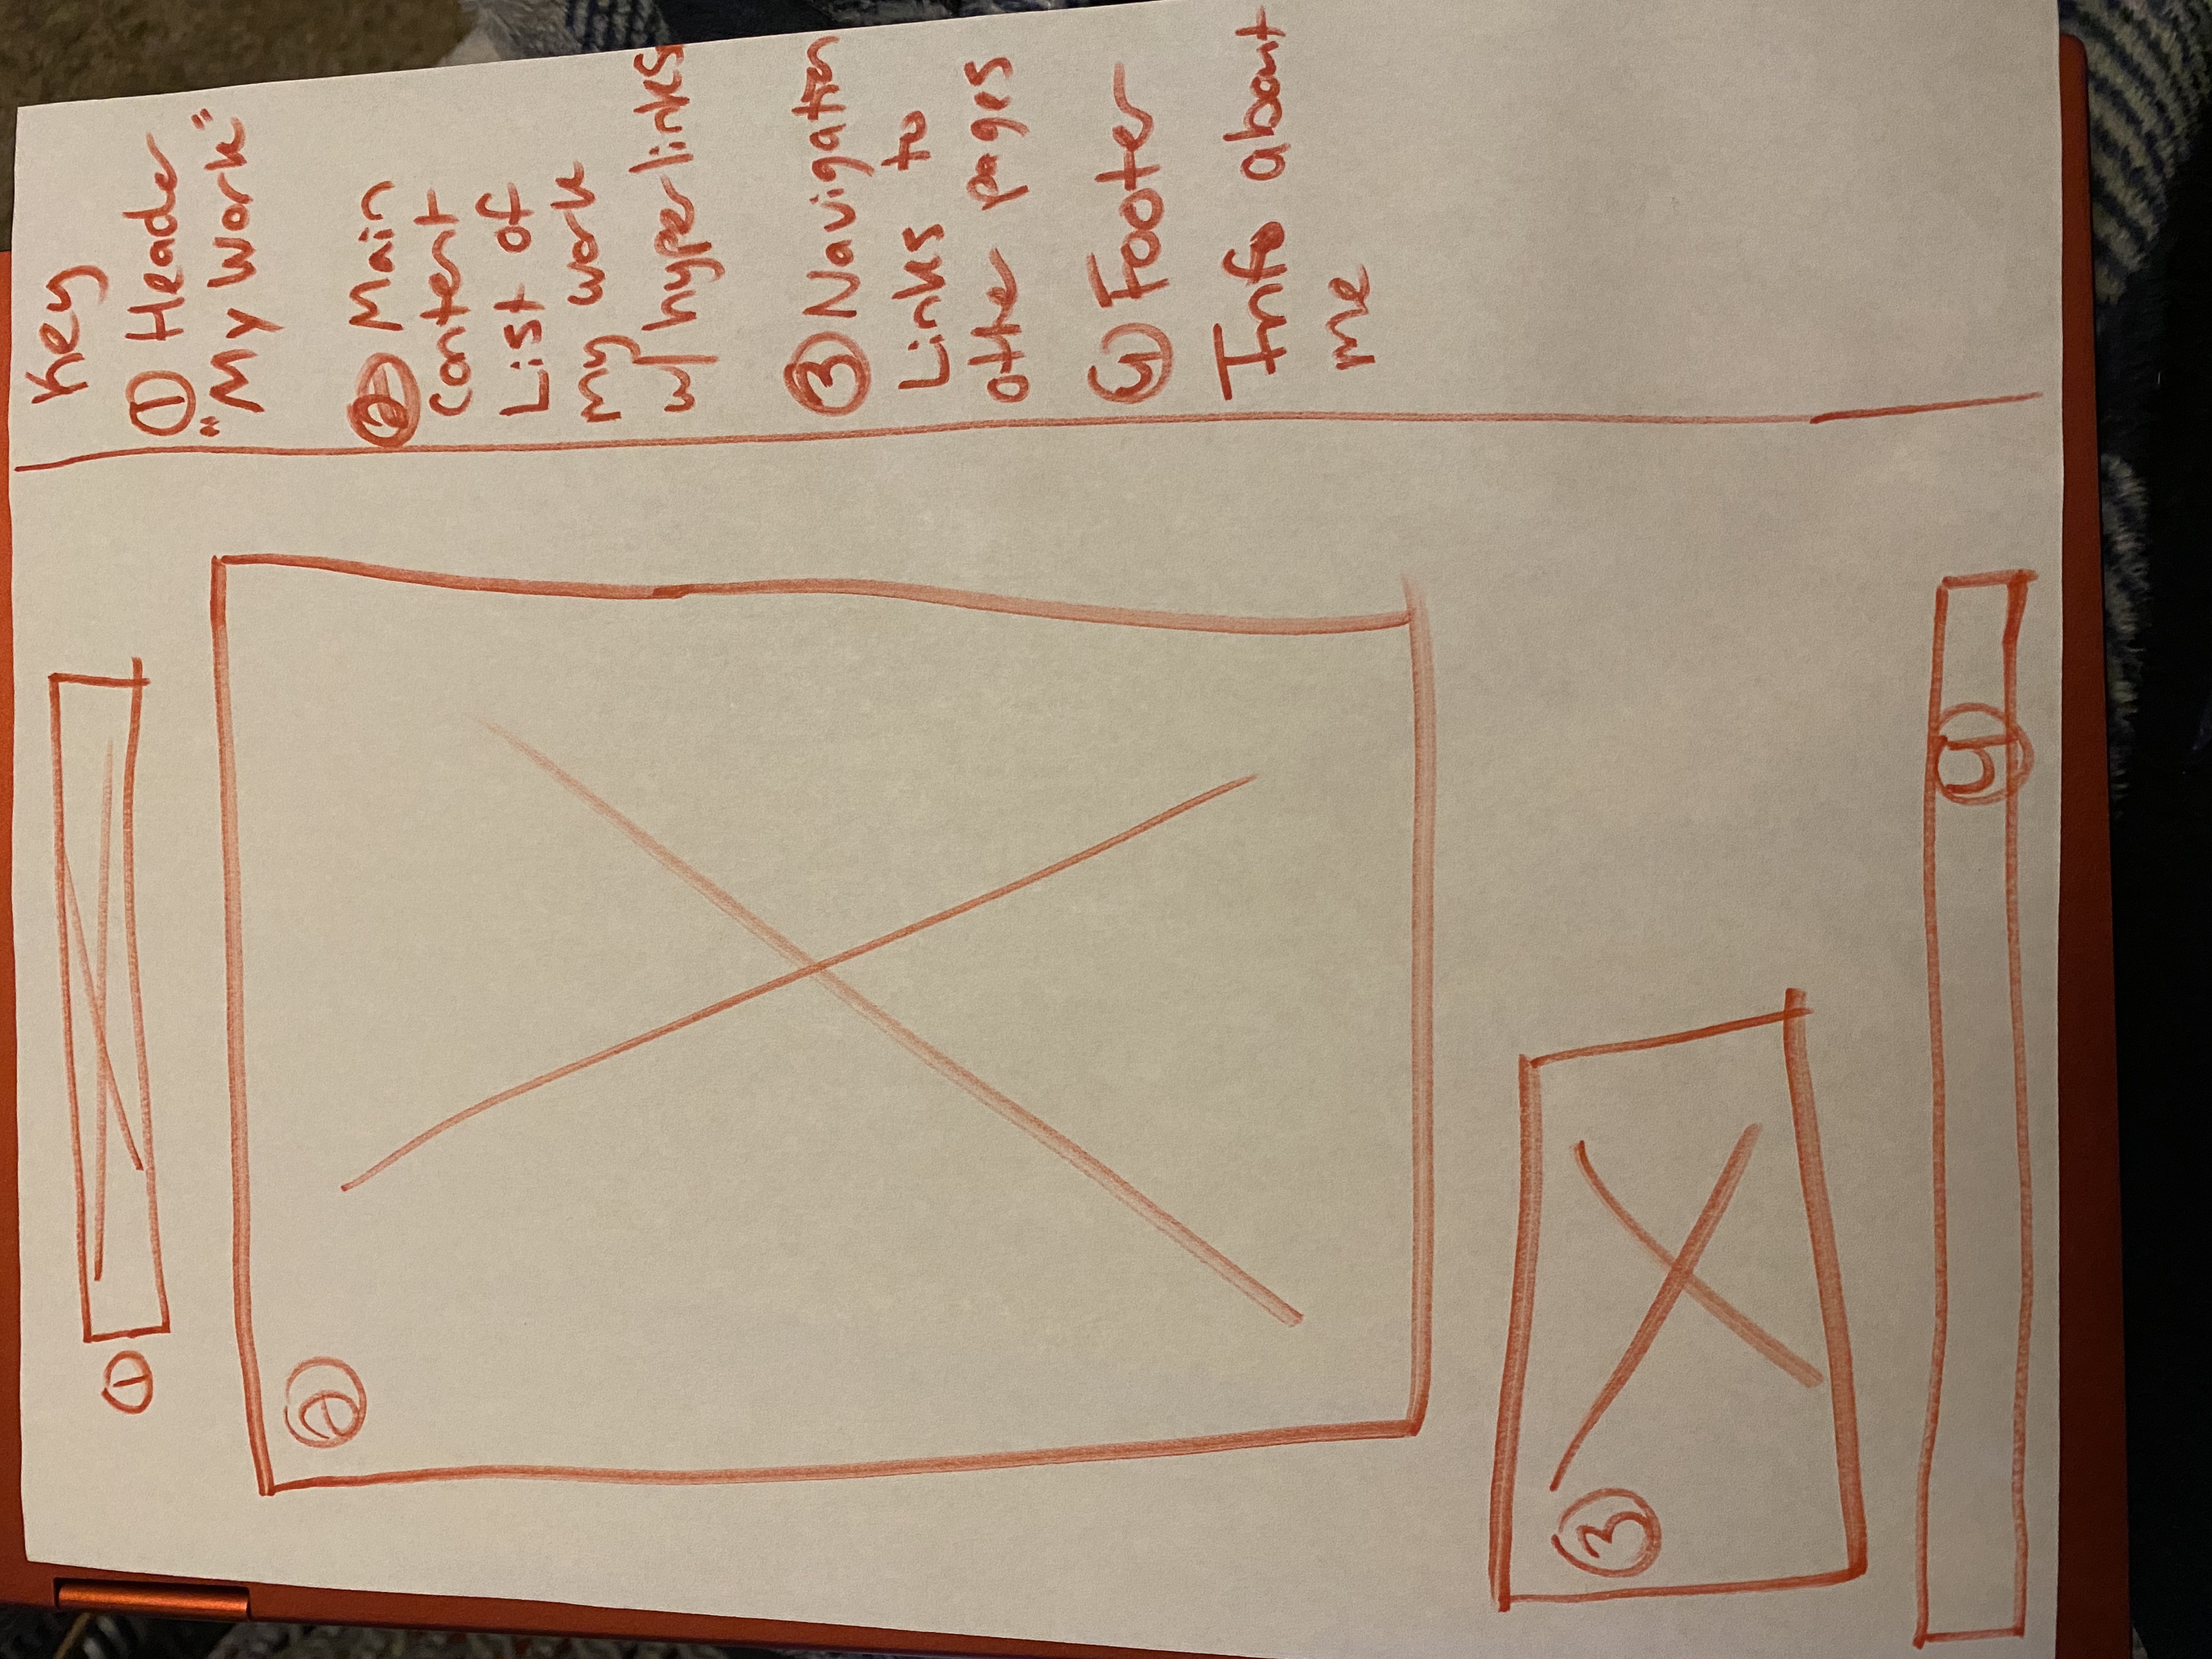 ①
②
③
④
Key
① Header
"My Work"
② Main
Content
List of
my work
w/ hyperlinks
③ Navigation
Links to
other pages
④ Footer
Info about
me